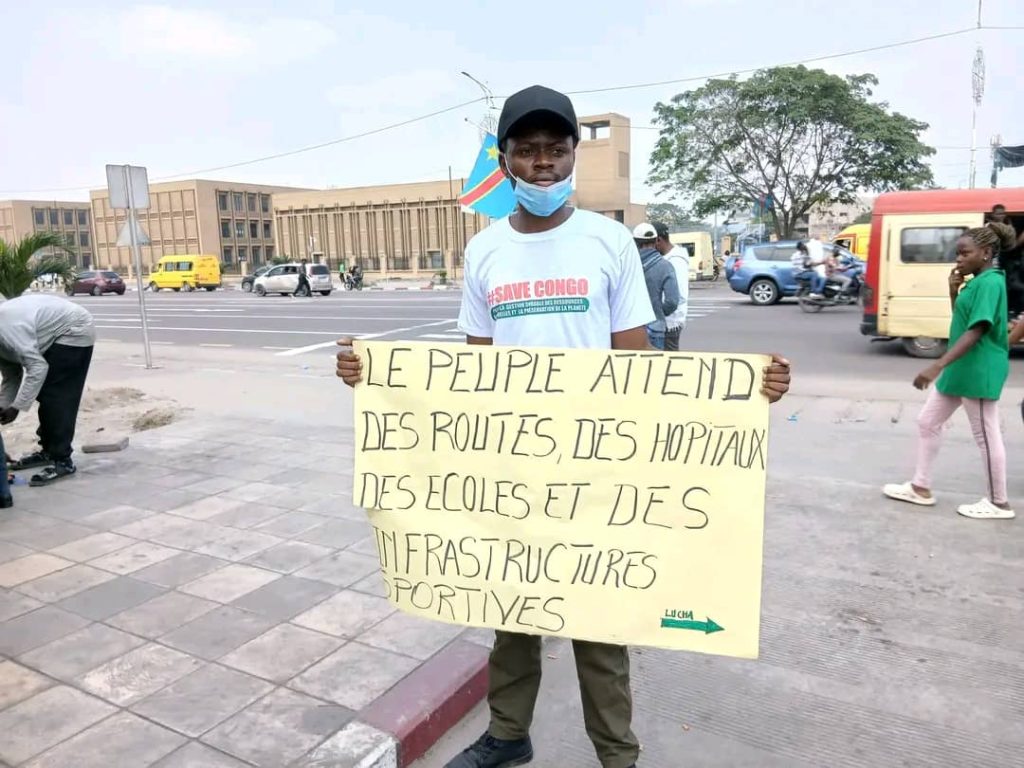 #SAVE CONGO
GESTION DURABLE DES RESSOURCES
ET LA PRÉSERVATION DE LA PLANÈTE
LE PEUPLE ATTEND
DES ROUTES, DES HOPITAUX
DES ECOLES ET DES
INFRASTRUCTURES
SPORTIVES
LUCHA